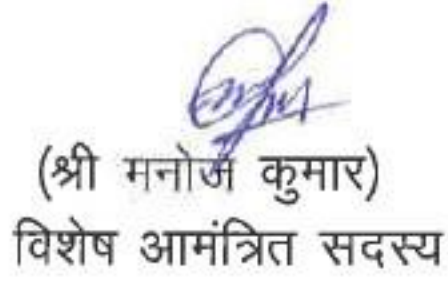 (श्री मनोज कुमार)
विशेष आमंत्रित सदस्य